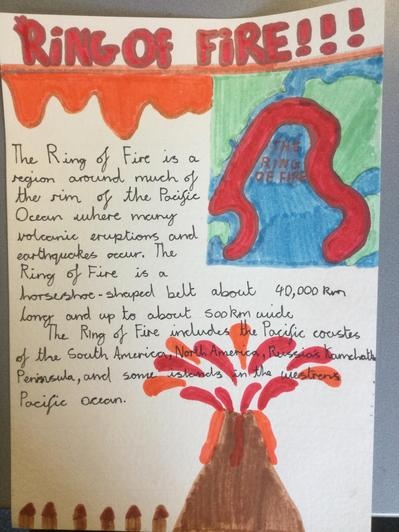 RING OF FIRE!!!
THE
RING
OF FIRE
The Ring of Fire is a
region around much of
the rim of the Pacific
Ocean where many
volcanic eruptions and
earthquakes occur. The
Ring of Fire is a
horseshoe-shaped belt about 40,000 km
long and up to about 500km wide
The Ring of Fire includes the Pacific coastes
of the South America, North America, Russia's Kamchatk
Peninsula, and some islands in the westrens
Pacific Ocean.